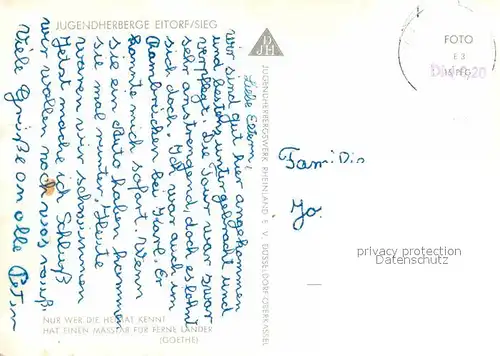 JUGENDHERBERGE EITORF/SIEG
Liebe Eltern,
wir sind gut hier angekommen
und bestens untergebracht und
verpflegt. Die Tour war zwar
sehr anstrengend, doch es lohnt
sich doch. Ich war auch im
bei Karl. Er
kannte mich sofort. Wenn
sie ein Auto haben kommen
sie mal runter. Heute
waren wir schwimmen
Jetzt mache ich Schluß
wir wollen noch was
Viele Grüße an alle
NUR WER DIE HEIMAT KENNT
HAT EINEN MASSTAB FÜR FERNE LÄNDER
(GOETHE)
DJH
JUGENDHERBERGSWERK RHEINLAND E. V. DÜSSELDORF-OBERKASSEL
FOTO
E 3
Familie
Jo
privacy protection
www.ansichtskartenversand.com